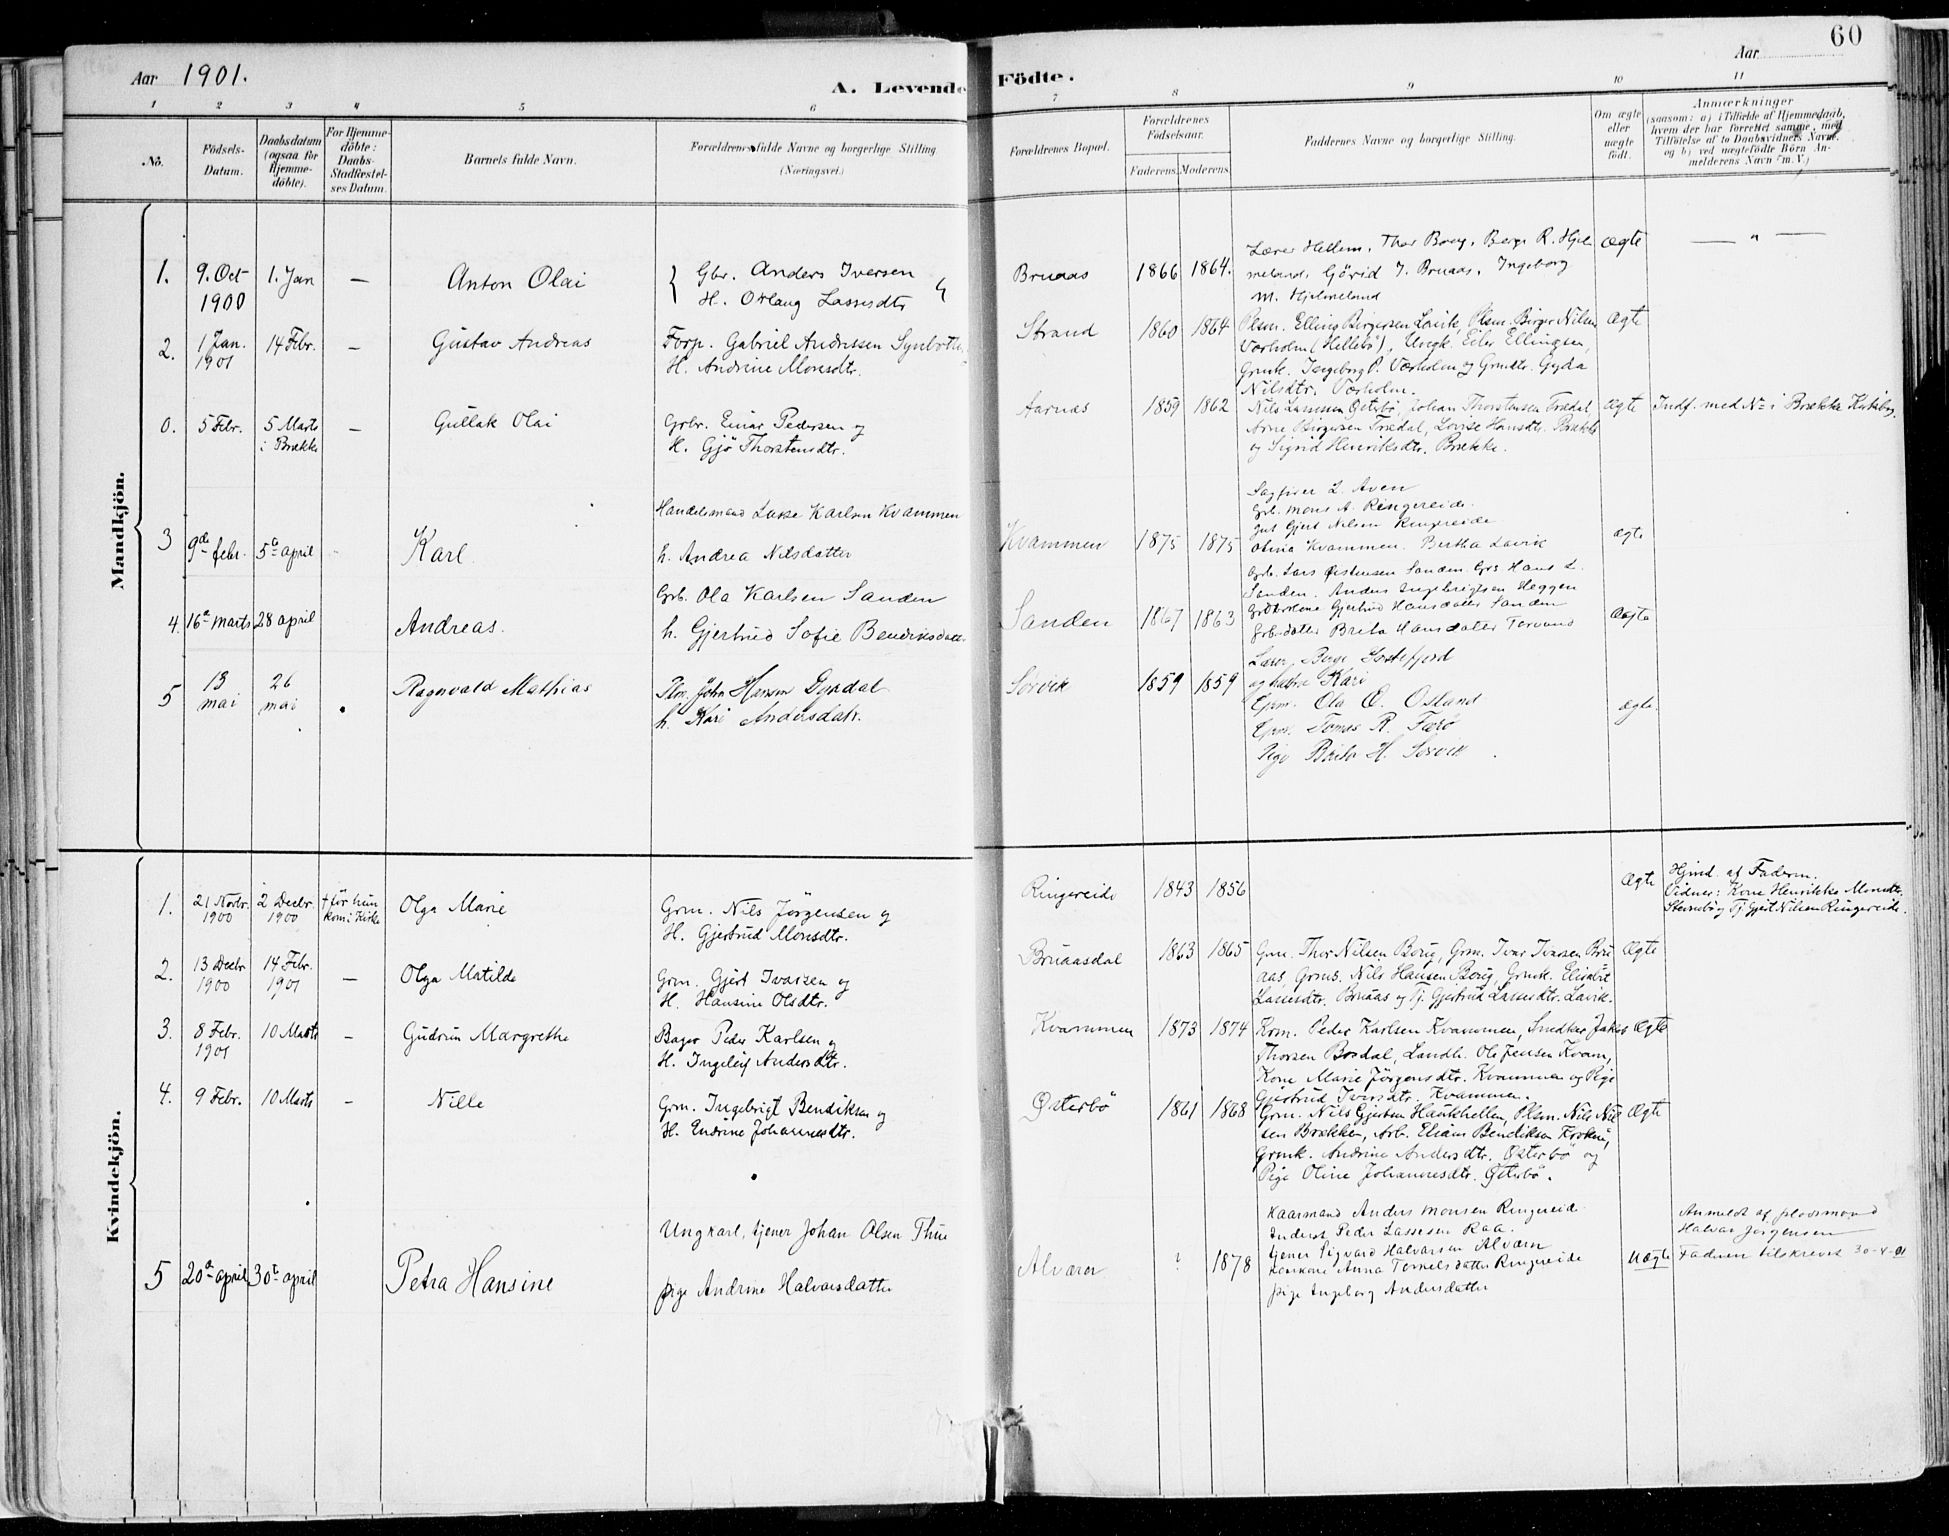 60
Aar 1901.
Aar
A. Levende Födte.
1 2 3 4 5 6 7 8 9 10 11
No.
Födsels-Datum.
Daabsdatum (ogsaa for Hjemme-döbte).
For Hjemme-döbte: Daabs-Stadfæstel-ses Datum.
Barnets fulde Navn.
Forældrenes fulde Navne og borgerlige Stilling
(Næringsvei.)
Forældrenes Bopæl.
Forældrenes Födselsaar.
Faderens. Moderens.
Faddernes Navne og borgerlige Stilling.
Om ægte eller uægte födt.
Anmærkninger
(saasom: a) i Tilfælde af Hjemmedaab,
hvem der har forrettet samme, med
Tilföielse af to Daabsvidners Navne,
og b) ved uægtefödte Börn An-
melderens Navn m. V.)
Mandkjön.
1. 9. Oct 1900 1. Jan — Anton Olai
Gbr. Anders Iversen
H. Otlaug Lassesdtr
Bruaas 1866 1864.
Lærer Hellem, Thor Borg, Berge R. Hjel
meland, Görid J. Bruaas, Ingeborg
M. Hjelmeland
Ægte — " —
2. 1 Jan. 1901 14 Febr. — Gustav Andreas
Forp. Gabriel Andressen
H. Andrine Monsdtr.
Strand 1860 1864
Plsm. Elling Birgersen Lavik, Plsm. Birger Nilsen
Værholm (Hellebö), Ungk. Eiler Ellingsen,
Grmk. Ingeborg P. Værholm og Grmdtr. Gyda
Nilsdtr. Værholm.
Ægte
0. 5 Febr. 5 Marts i Brække — Gullak Olai
Grbr. Einar Pedersen og
H. Gjö Thorstensdtr.
Aarnæs 1859 1862
Nils Lassesen Österbö, Johan Thorstensen Trædal,
Arne Birgersen Trædal, Lovise Hansdtr. Brække
og Sigrid Henriksdtr. Brække.
Ægte Indf. med No i Brække Kirkebog.
3 9de febr. 5te april Karl
Handelsmand Lasse Karlsen Kvammen
h. Andrea Nilsdatter
Kvammen 1875 1875
Sagfører L. Aven
Grb. Mons A. Ringereide.
Gut Gjert Nilsen Ringereide
Olina Kvammen. Bertha Lavik
ægte
4. 16de marts 28 april Andreas.
Grb. Ola Karlsen Sanden
h. Gjertrud Sofie Bendiksdatt.
Sanden 1867 1863
Grb. Lars Østensen Sanden. Grs Hans L.
Sanden. Anders Ingebrigtsen Heggen
Gjertrud Hansdatter Sanden
Grb.datter Brita Hansdatter Torvund
Ægte
5 13 mai 26 mai Ragnvald Mathias
Plm. John Hansen Dyrdal
h. Kari Andersdatr.
Sørvik 1859 1859
Lærer Berge Sørtefjord
og hustru Kari
Ola O. Osland
Tomas R. Færö
Pige Brita H. Sørvik
ægte.
Kvindekjön.
1. 21 Novbr. 1900 2 Decbr. 1900 † för hun kom i Kirke Olga Marie
Grm. Nils Jørgensen og
H. Gjertrud Monsdtr.
Ringereide 1843 1856
Ægte
Hjmd. af Faderen.
Vidner: Kone Henrikke Monsdtr.
Steinsbö og Tj. Gjert Nilsen Ringereide.
2. 13 Decbr 1900 14 Febr. 1901 — Olga Matilde
Grm. Gjert Ivarsen og
H. Hansine Olsdtr.
Bruaasdal 1863 1865
Grm. Thor Nilsen Borg, Grm. Ivar Ivarsen Bru
aas, Grms. Nils Hansen Borg, Grmk. Elisabet
Lassesdtr. Bruaas og Tj. Gjertrud Lassesdtr. Lavik.
Ægte
3. 8 Febr. 1901 10 Marts — Gudrun Margrethe
Bager Peder Karlsen og
H. Ingeleif Andersdtr.
Kvammen 1873 1874
Kom. Peder Karlsen Kvammen, Snedker Jakob
Thorsen Bordal, Landh. Ole Jensen Kvam,
Kone Marie Jörgensdtr. Kvammen og Pige
Gjertrud Iversdtr. Kvammen.
Ægte
4. 9 Febr. 10 Marts — Nille
Grm. Ingebrigt Bendiksen og
H. Endrine Johannesdtr.
Østerbö 1861 1868
Grm. Nils Gjertsen Haukhellen, Plsm. Nils Niel
sen Brækken, Arb. Elias Bendiksen
Grmk. Andrine Andersdtr. Österbö og
Pige Oline Johannesdtr. Österbö.
Ægte
5 20de april 30te april Petra Hansine
Ungkarl, tjener Johan Olsen Thue
pige Andrine Halvarsdatter
Alværen ? 1878
Kaarmand Anders Monsen Ringereide
Inderst Peder Lassesen Raa.
tjener Sigvard Halvarsen Alværn
Anna Torkelsdatter Ringereide
pige Ingeborg Andersdatter
Uægte
Anmeldt af pladsmand
Halvar Jørgensen
Faderen tilskrevet 30-4-01